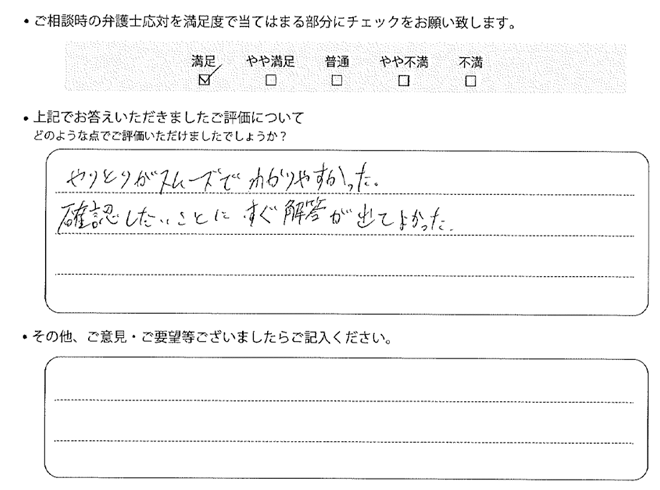 ・ご相談時の弁護士応対を満足度で当てはまる部分にチェックをお願い致します。
満足 やや満足 普通 やや不満 不満
☑ □ □ □ □
・上記でお答えいただきましたご評価について
どのような点でご評価いただけましたでしょうか？
やりとりがスムーズで わかりやすかった。
確認したいことに すぐ解答が出てよかった。
・その他、ご意見・ご要望等ございましたらご記入ください。